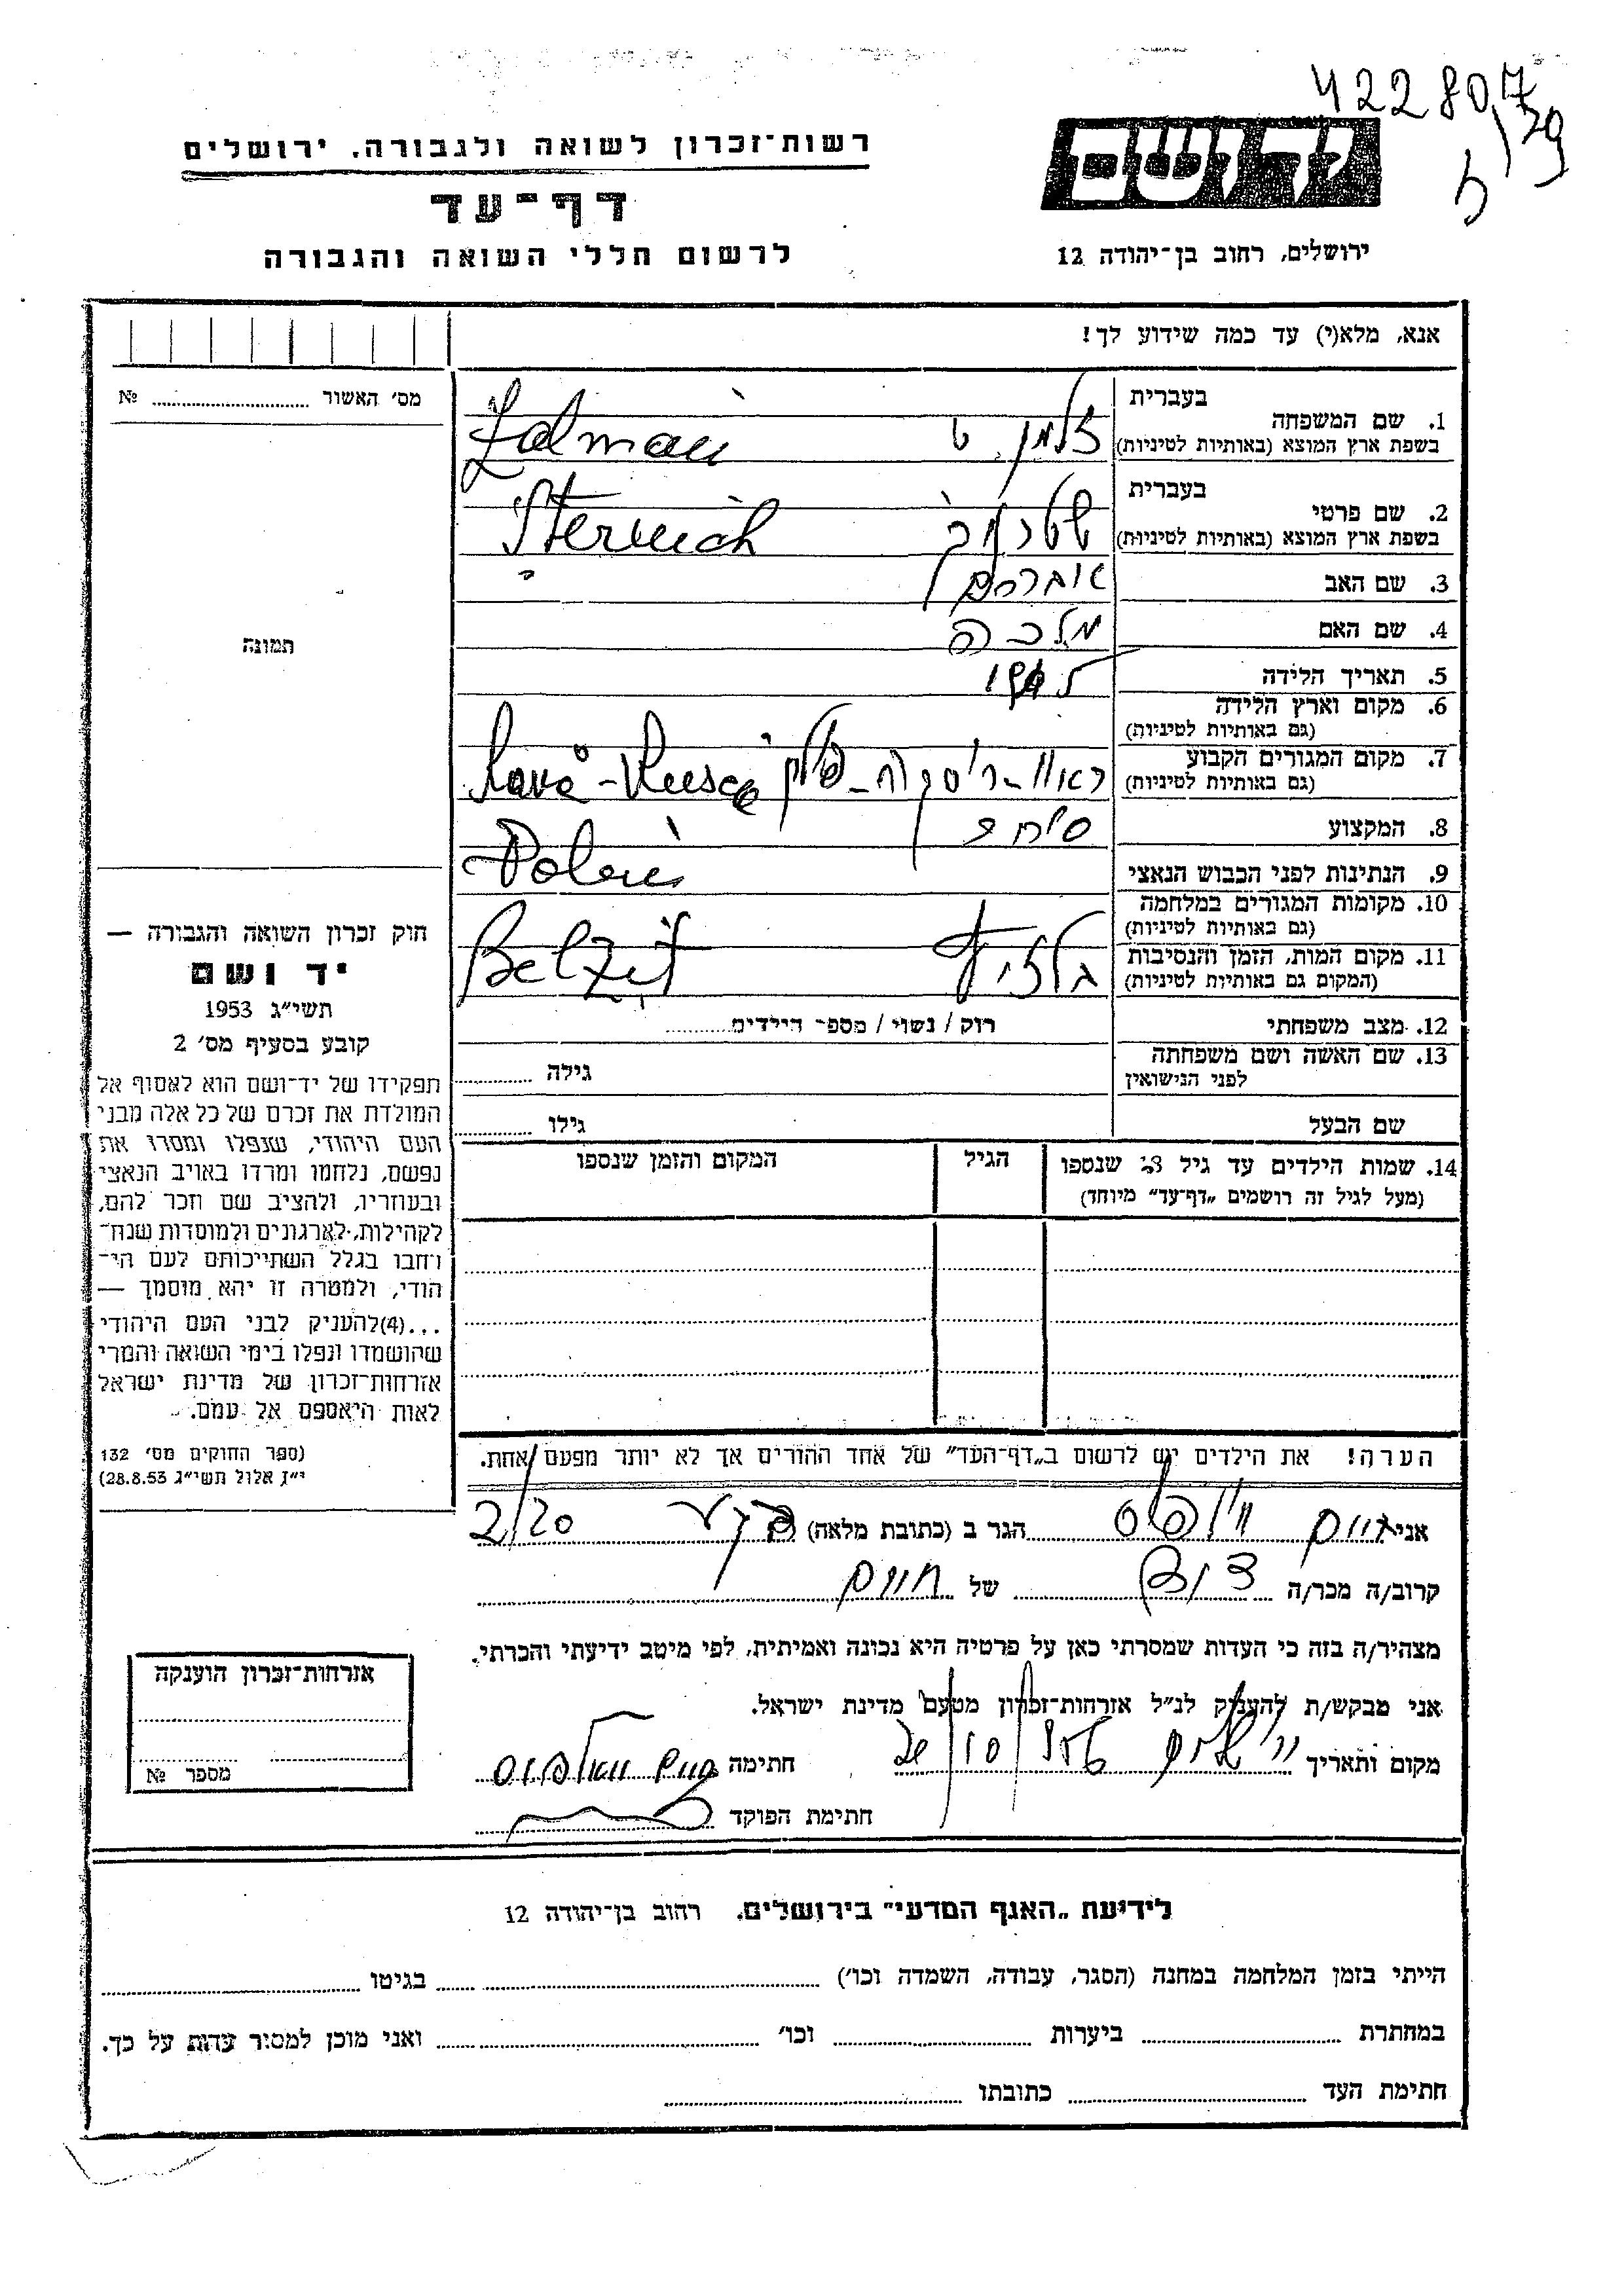 4228017
רשות־זכרון לשואה ולגבורה. ירושלים
ידושם
דף־עד
לרשום חללי השואה והגבורה
ירושלים, רחוב בן־יהודה 12
אנא, מלא(י) עד כמה שידוע לך!
מס׳ האשור ........ №
1. שם המשפחה
בעברית
בשפת ארץ המוצא (באותיות לטיניות)
זלמן
Zalman
2. שם פרטי
בעברית
בשפת ארץ המוצא (באותיות לטיניות)
3. שם האב אברהם
4. שם האם מלכה
תמונה
5. תאריך הלידה
6. מקום וארץ הלידה
(גם באותיות לטיניות)
7. מקום המגורים הקבוע
(גם באותיות לטיניות)
8. המקצוע סוחר
9. הנתינות לפני הכבוש הנאצי
10. מקומות המגורים במלחמה
(גם באותיות לטיניות)
11. מקום המות, הזמן והנסיבות
(המקום גם באותיות לטיניות)
12. מצב משפחתי רוק / נשוי / מספר הילדים
13. שם האשה ושם משפחתה
לפני הנישואין
גילה
שם הבעל גילו
14. שמות הילדים עד גיל 18 שנספו
(מעל לגיל זה רושמים „דף־עד” מיוחד)
הגיל
המקום והזמן שנספו
חוק זכרון השואה והגבורה —
יד ושם
תשי״ג 1953
קובע בסעיף מס׳ 2
תפקידו של יד־ושם הוא לאסוף אל
המולדת את זכרם של כל אלה מבני
העם היהודי, שנפלו ומסרו את
נפשם, נלחמו ומרדו באויב הנאצי
ובעוזריו, ולהציב שם וזכר להם,
לקהילות, לארגונים ולמוסדות שנח־
רחבו בגלל השתייכותם לעם הי־
הודי, ולמטרה זו יהא מוסמך —
...(4)להעניק לבני העם היהודי
שהושמדו ונפלו בימי השואה והמרי
אזרחות־זכרון של מדינת ישראל
לאות היאספם אל עמם.
(ספר החוקים מס׳ 132
י״ז אלול תשי״ג 28.8.53)
הערה! את הילדים יש לרשום ב„דף־העד” של אחד ההורים אך לא יותר מפעם אחת.
אני חיים הגר ב (כתובת מלאה) 2/20
קרוב/ה מכר/ה של חיים
מצהיר/ה בזה כי העדות שמסרתי כאן על פרטיה היא נכונה ואמיתית, לפי מיטב ידיעתי והכרתי.
אני מבקש/ת להעניק לנ״ל אזרחות־זכרון מטעם מדינת ישראל.
מקום ותאריך
חתימה חיים
חתימת הפוקד
אזרחות־זכרון הוענקה
מספר №
לידיעת „האגף המדעי” בירושלים. רחוב בן־יהודה 12
הייתי בזמן המלחמה במחנה (הסגר, עבודה, השמדה וכו׳) בגיטו
במחתרת ביערות וכו׳ ואני מוכן למסור עדות על כך.
חתימת העד כתובתו